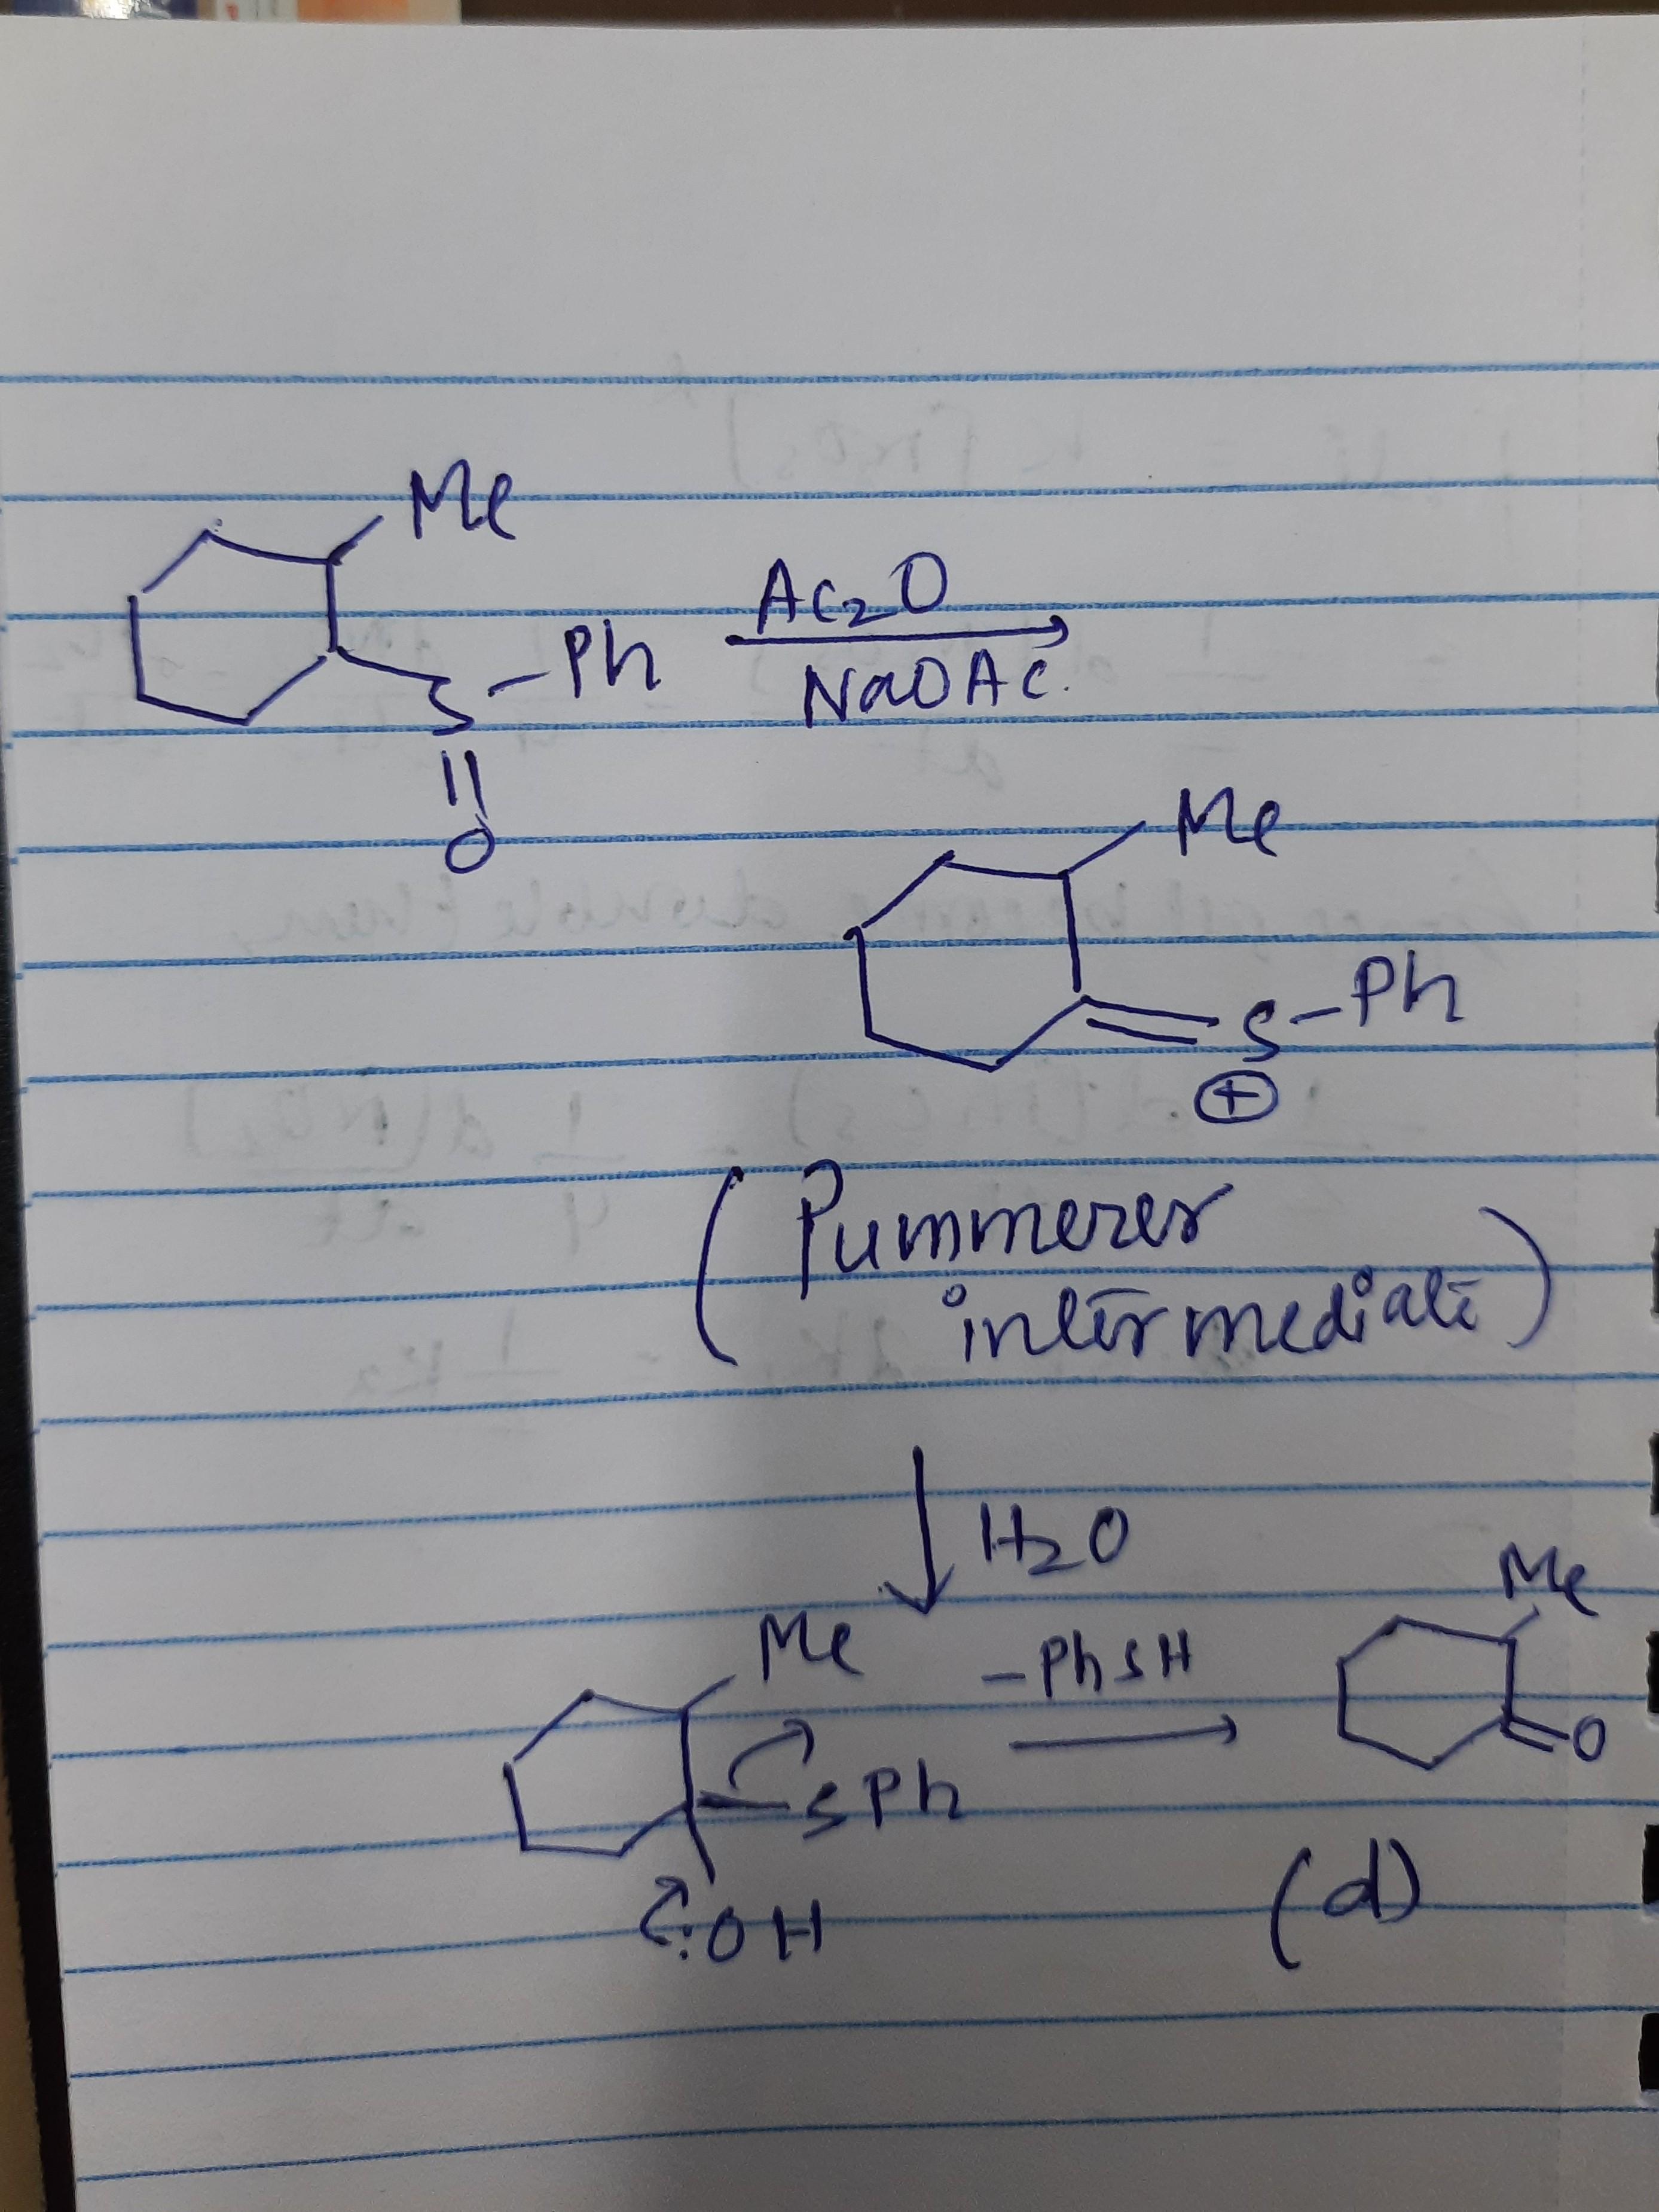 Me
Ac2O
S-Ph
NaOAc.
O
Me
S-Ph
⊕
(Pummerer
intermediate)
H2O
Me
Me
-PhSH
O
SPh
:OH
(d)